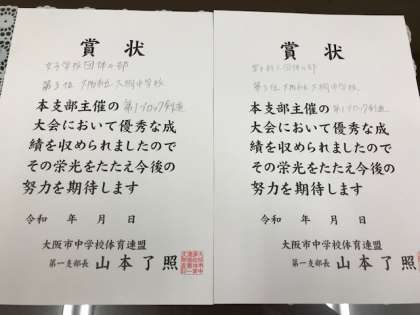 賞状
女子学校団体の部
第3位 大阪市立大桐中学校
本支部主催の第1ブロック剣道
大会において優秀な成
績を収められましたので
その栄光をたたえ今後の
努力を期待します
令和 年 月 日
大阪市中学校体育連盟
第一支部長 山本了照
賞状
団体の部
第3位 大阪市立大桐中学校
本支部主催の第1ブロック剣道
大会において優秀な成
績を収められましたので
その栄光をたたえ今後の
努力を期待します
令和 年 月 日
大阪市中学校体育連盟
第一支部長 山本了照